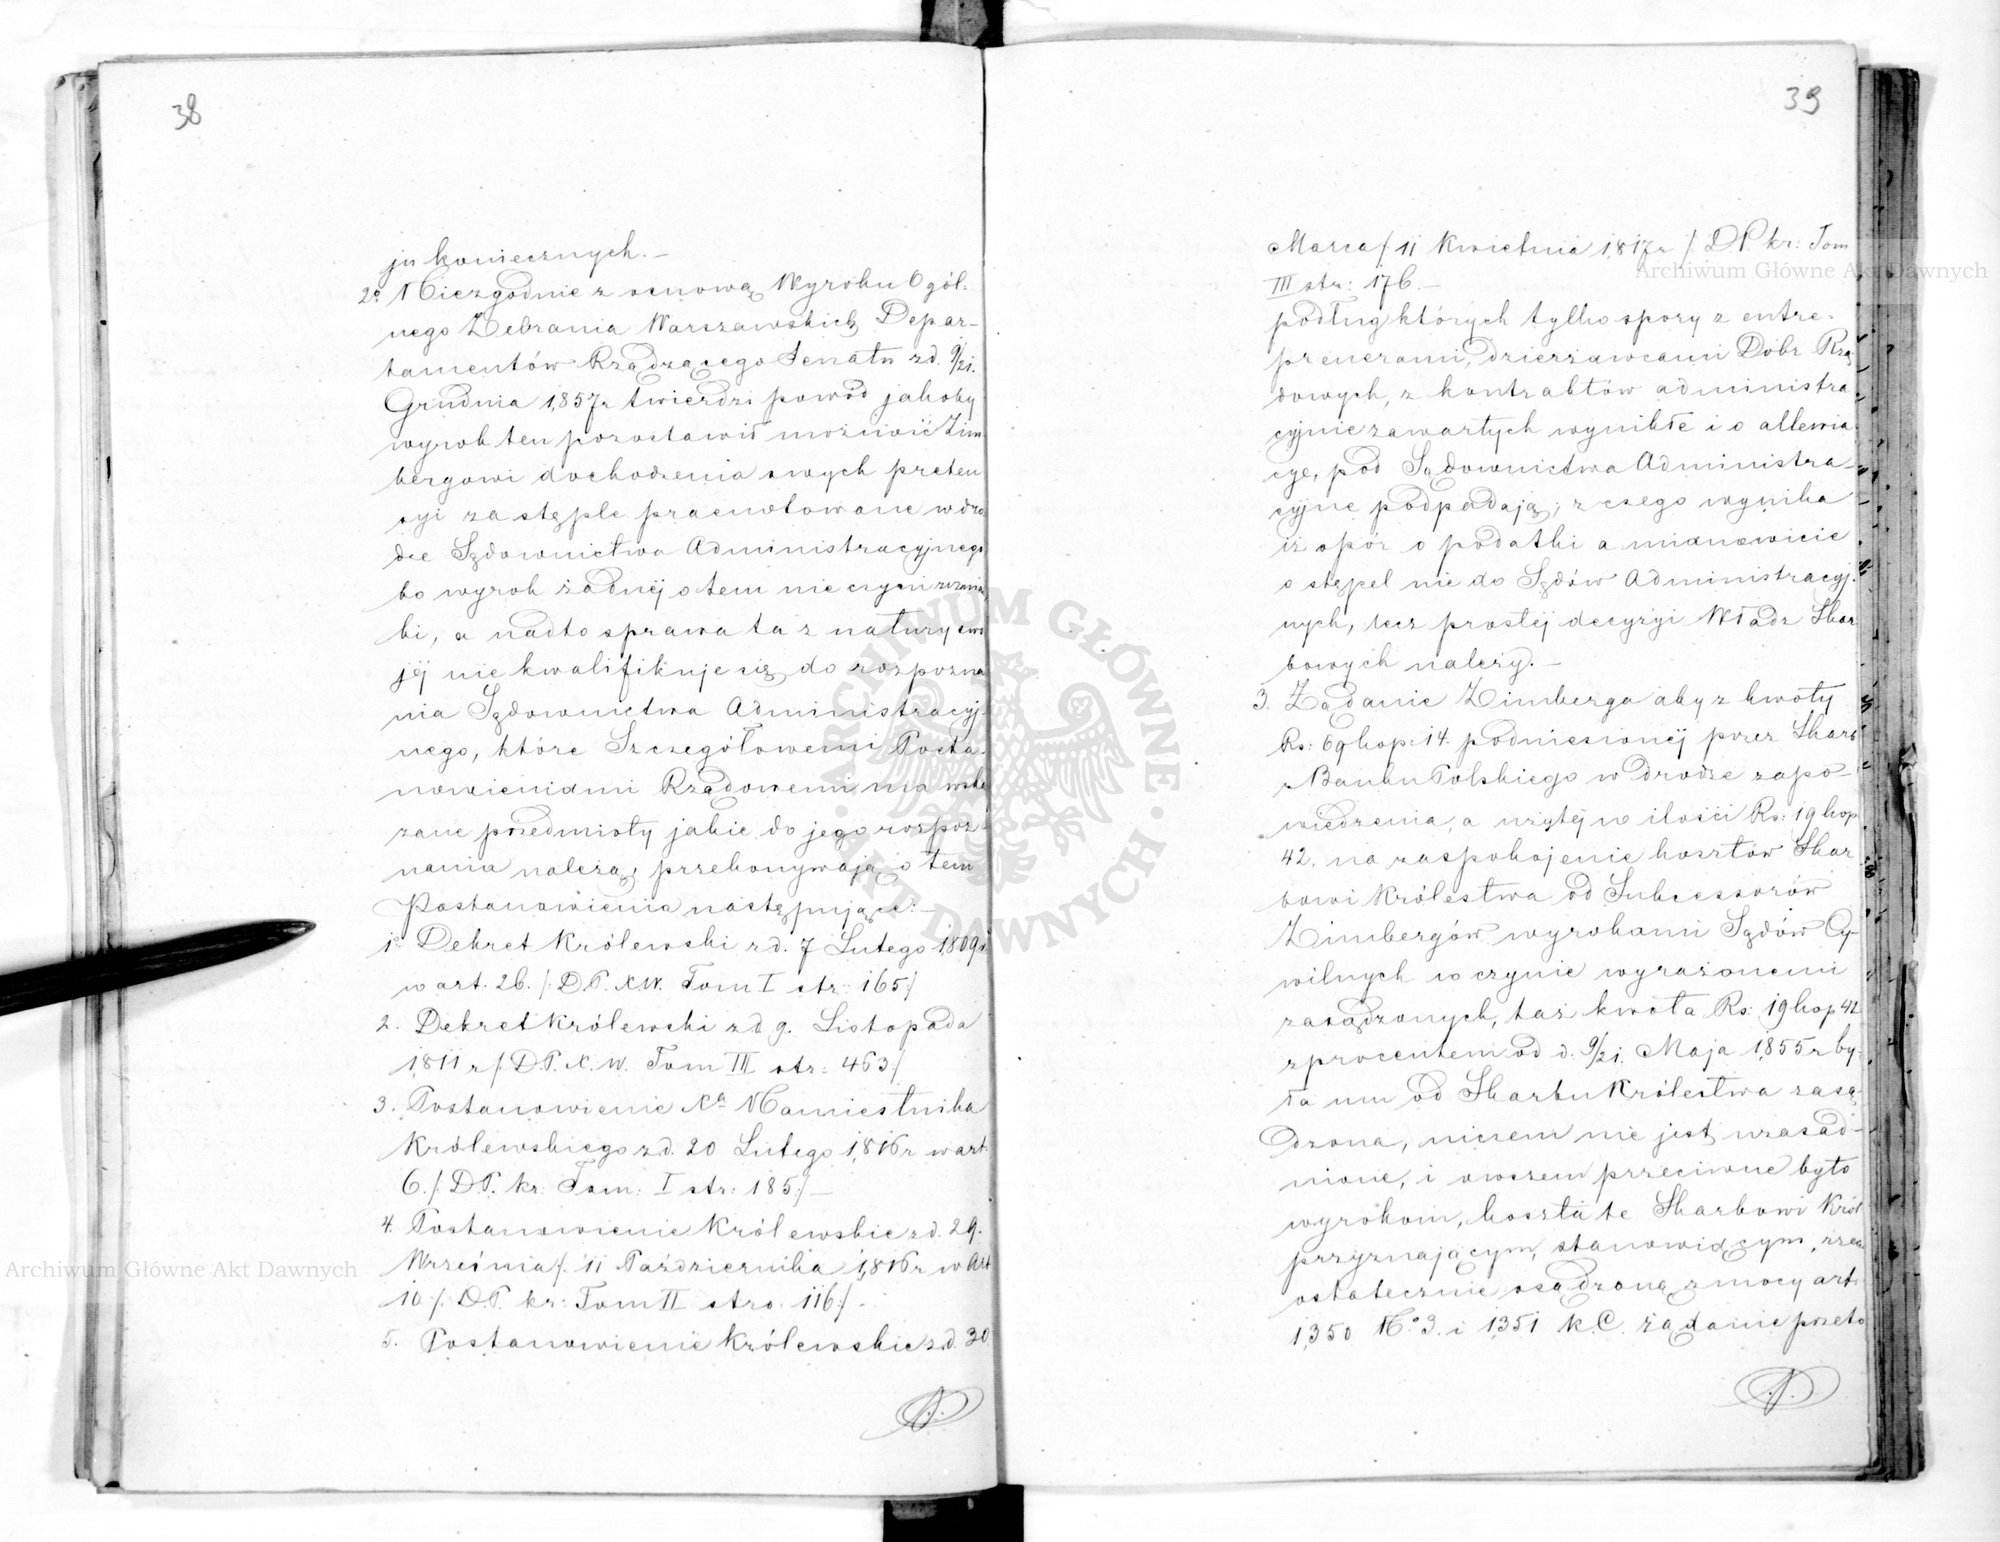 38
ju koniecznych. –
2º Niezgodnie z osnową Wyroku Ogól-
nego Zebrania Warszawskich Depar-
tamentów Rządzącego Senatu z d. 9/21.
Grudnia 1857 r twierdzi powód jakoby
wyrok ten pozostawił możność Zim
bergowi dochodzenia swych preten
syi za stęple praenotowane w dro
dze Sądownictwa Administracyjnego
bo wyrok żadnéj o tem nie czyni wzmia
ki, a nadto sprawa ta z natury swo
jéj nie kwalifikuje się do rozpozna
nia Sądownictwa Administracyj-
nego, które Szczegółowemi Posta-
nowieniami Rządowemi ma wska
zane przedmioty jakie do jego rozpoz-
nania należą, przekonywają o tem
Postanowienia następujące: –
1º Dekret Królewski z d. 7 Lutego 1809 r
w art. 26. /: D.P. X.W. Tom I str: 165 :/
2. Dekret Królewski z d. 9. Listopada
1811 r /: D.P. X. W. Tom III str: 463 :/
3. Postanowienie Xa Namiestnika
Królewskiego z d. 20 Lutego 1816 r w art.
6. /: D.P. kr: Tom: I str: 185 :/ –
4. Postanowienie Królewskie z d. 29.
Września /: 11 Października 1816 r w Art
10 /: D.P. kr: Tom II stro. 116 :/ –
5. Postanowienie Królewskie z d. 30
39
Marca /: 11 Kwietnia 1817 r /: D P kr: Tom
III str: 176. –
podług których tylko spory z entre-
prenerami, dzierżawcami Dóbr Rzą
dowych, z kontraktów administra
cyjnie zawartych wynikłe i o allewia
cye, pod Sądownictwa Administra-
cyjne podpadają; z czego wynika
iż spór o podatki a mianowicie
o stępel nie do Sądów Administracyj-
nych, lecz prostéj decyzyi Władz Skar
bowych należy. –
3. Żądanie Zimberga aby z kwoty
Rs: 69 kop: 14. podniesionéj przez Skarb
z Banku Polskiego w drodze zapo-
wiedzenia, a użytéj w ilości Rs: 19 kop
42. na zaspokojenie kosztów Skar
bowi Królestwa od Sukcessorów
Zimbergów wyrokami Sądów Cy-
wilnych w czynie wyrażonemi
zasądzonych, taż kwota Rs: 19 kop 42
z procentem od d. 9/21. Maja 1855 r by-
ła mu od Skarbu Królestwa zasą-
dzona, niczem nie jest uzasad-
nione, i owszem przeciwne było
wyrokom, koszta te Skarbowi Król
przyznającym, stanowiącym rzecz
ostatecznie osądzoną z mocy art:
1350 Nº 3. i 1351 K.C. żądanie przeto
Archiwum Główne Akt Dawnych
Archiwum Główne Akt Dawnych
ARCHIWUM GŁÓWNE · AKT DAWNYCH ·